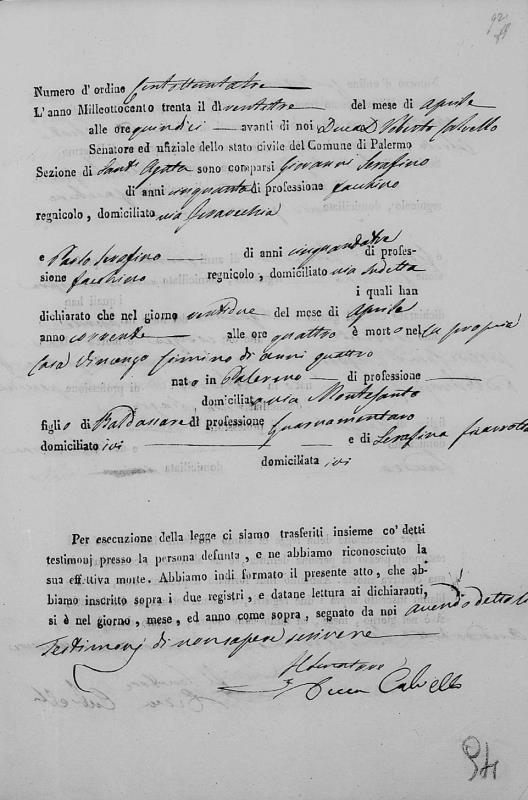 92
Numero d' ordine Centottantatre
L' anno Milleottocento trenta il dì ventitre del mese di Aprile
alle ore quindici avanti di noi Duca D. Vincenzo Calvello
Senatore ed ufiziale dello stato civile del Comune di Palermo
Sezione di Sant' Agata sono comparsi Giovanni Serafino
di anni cinquanta di professione facchino
regnicolo, domiciliato via
e Paolo Serafino di anni cinquantatre di profes-
sione facchino regnicolo, domiciliato via sudetta
i quali han
dichiarato che nel giorno ventidue del mese di Aprile
anno corrente alle ore quattro è morto nel la propria
casa di anni quattro
nato in Palermo di professione
domiciliato via Montesanto
figlio di Baldassare di professione
domiciliato ivi e di Serafina
domiciliata ivi
Per esecuzione della legge ci siamo trasferiti insieme co' detti
testimonj presso la persona defunta, e ne abbiamo riconosciuto la
sua effettiva morte. Abbiamo indi formato il presente atto, che ab-
biamo inscritto sopra i due registri, e datane lettura ai dichiaranti,
si è nel giorno, mese, ed anno come sopra, segnato da noi avendo detto li
Testimonj di non sapere scrivere
Il Senatore
Duca Calvello